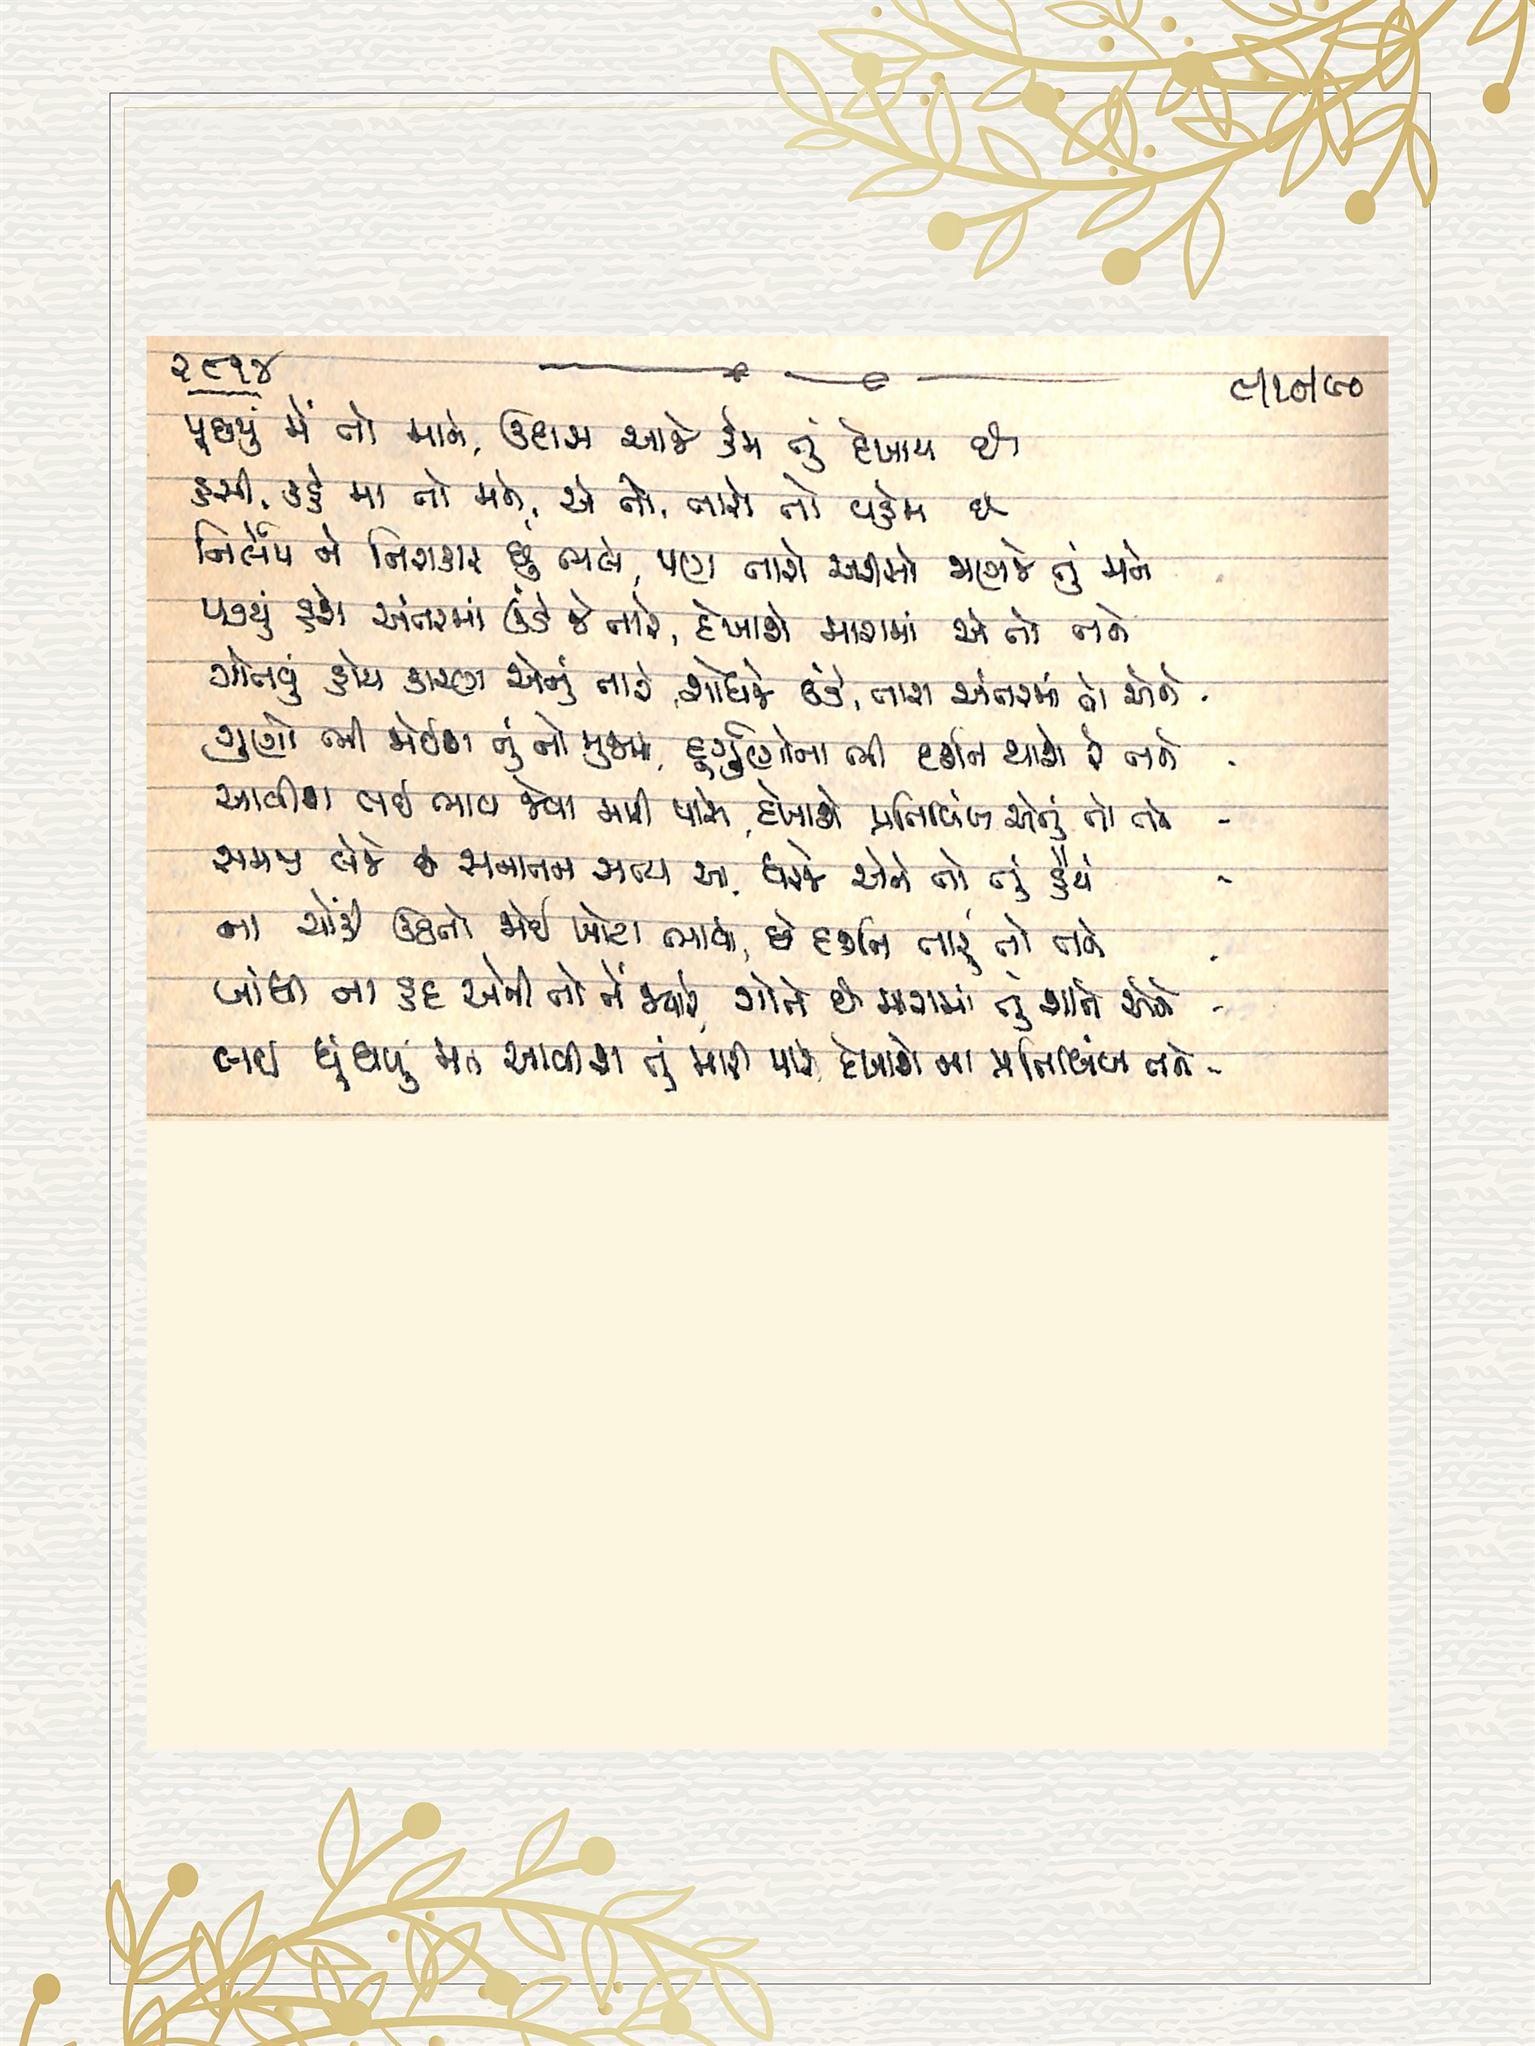 ૨૯૧૪
૯/૧૦/૯૦
પૂછયું મેં તો માને, ઉદાસ આજે કેમ તું દેખાય છે
હસી, કહે મા તો મને, એ તો, તારો તો વહેમ છે
નિર્લેપ ને નિરાકાર છું ભલે, પણ તારો અરીસો ગણજે તું મને
પડયું હશે અંતરમાં ઊંડે જે તારે, દેખાશે મારામાં એ તો તને
ગોતવું હોય કારણ એનું તારે, શોધજે ઊંડે, તારા અંતરમાં તો એને
ગુણો ભી જોઈશ તું તો મુજમાં, દુર્ગુણોના ભી દર્શન થાશે રે તને
આવીશ લઈ ભાવ જેવા મારી પાસે, દેખાશે પ્રતિબિંબ એનું તો તને
સમજી લેજે સનાતન સત્ય આ, ધરજે એને તો તું હૈયે
ના ચોંકી ઉઠતો જોઈ ખોટા ભાવો, છે દર્શન તારું તો તને
બાંધી ના હદ એની તો તેં જ્યારે, ગોતે છે મારામાં તું શાને એને
લઈ ધૂંધળું મન આવીશ તું મારી પાસે, દેખાશે ના પ્રતિબિંબ તને